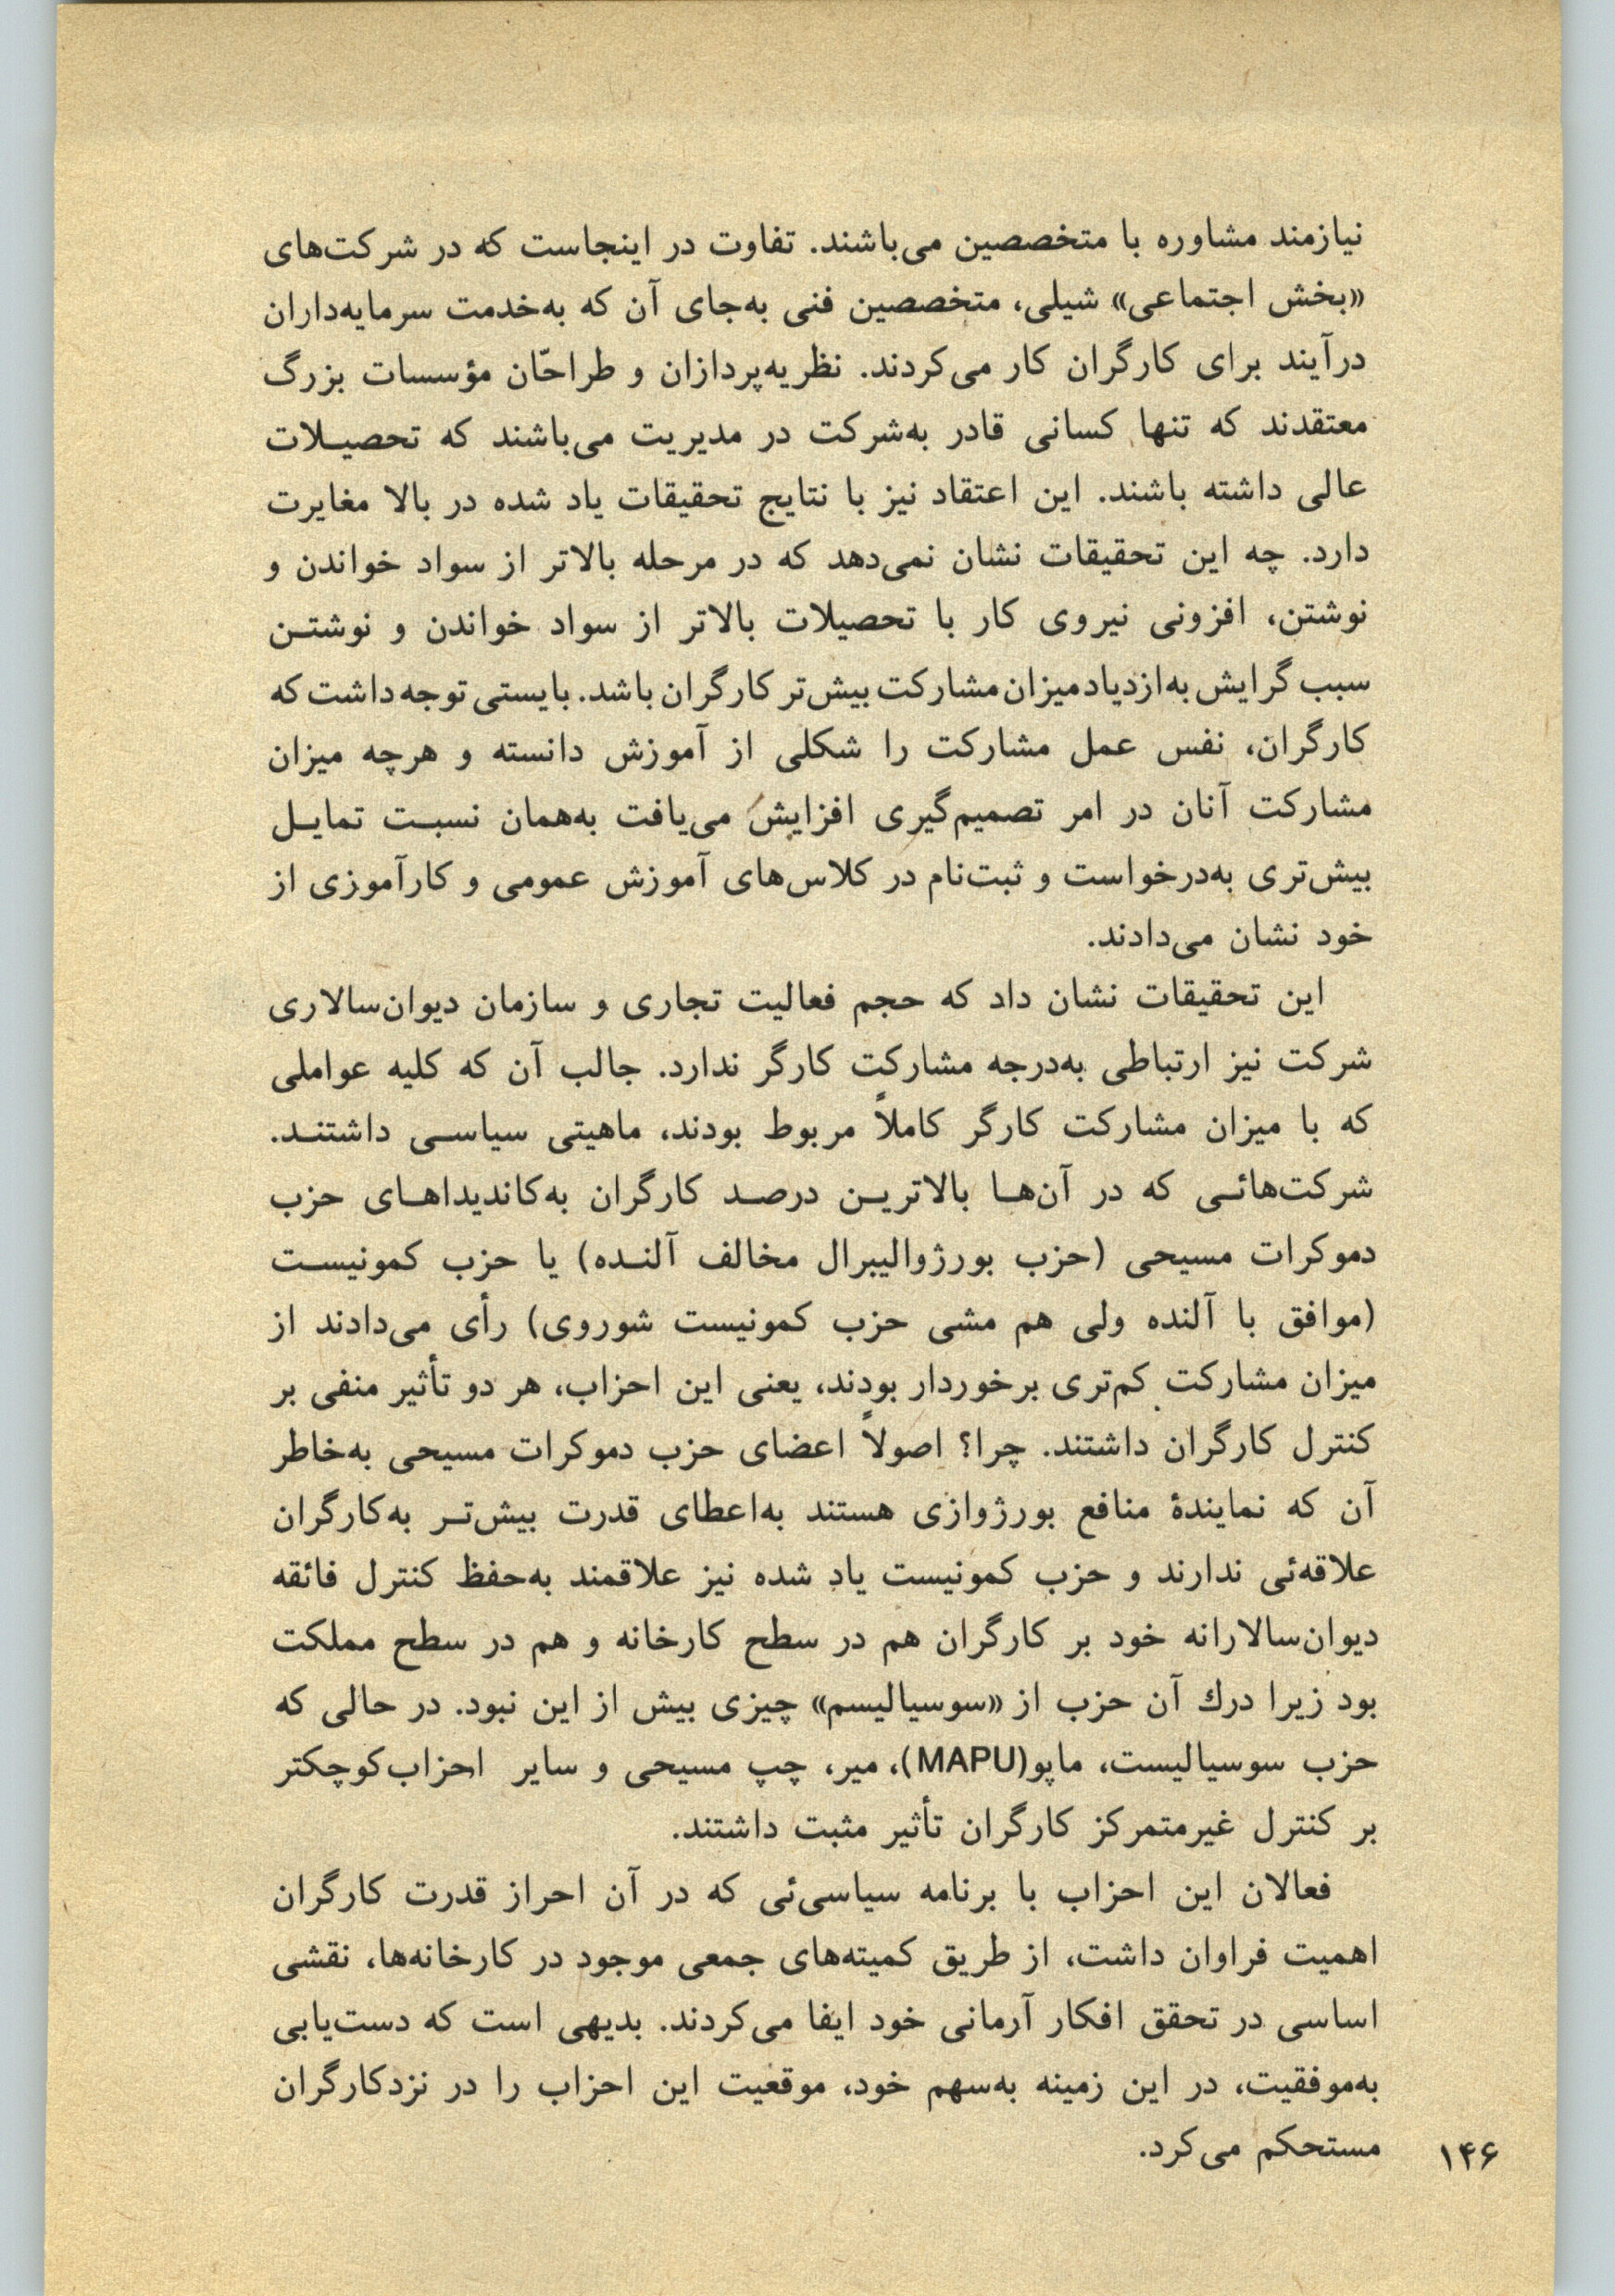 نیازمند مشاوره با متخصصین می‌باشند. تفاوت در اینجاست که در شرکت‌های
«بخش اجتماعی» شیلی، متخصصین فنی به‌جای آن که به‌خدمت سرمایه‌داران
درآیند برای کارگران کار می‌کردند. نظریه‌پردازان و طراحّان مؤسسات بزرگ
معتقدند که تنها کسانی قادر به‌شرکت در مدیریت می‌باشند که تحصیـلات
عالی داشته باشند. این اعتقاد نیز با نتایج تحقیقات یاد شده در بالا مغایرت
دارد. چه این تحقیقات نشان نمی‌دهد که در مرحله بالاتر از سواد خواندن و
نوشتن، افزونی نیروی کار با تحصیلات بالاتر از سواد خواندن و نوشتـن
سبب گرایش به‌ازدیاد میزان مشارکت بیش‌تر کارگران باشد. بایستی توجه داشت که
کارگران، نفس عمل مشارکت را شکلی از آموزش دانسته و هرچه میزان
مشارکت آنان در امر تصمیم‌گیری افزایش می‌یافت به‌همان نسبـت تمایـل
بیش‌تری به‌درخواست و ثبت‌نام در کلاس‌های آموزش عمومی و کارآموزی از
خود نشان می‌دادند.
این تحقیقات نشان داد که حجم فعالیت تجاری و سازمان دیوان‌سالاری
شرکت نیز ارتباطی به‌درجه مشارکت کارگر ندارد. جالب آن که کلیه عواملی
که با میزان مشارکت کارگر کاملاً مربوط بودند، ماهیتی سیاسـی داشتنـد.
شرکت‌هائـی که در آن‌هـا بالاتریـن درصـد کارگران به‌کاندیداهـای حزب
دموکرات مسیحی (حزب بورژوالیبرال مخالف آلنـده) یا حزب کمونیسـت
(موافق با آلنده ولی هم مشی حزب کمونیست شوروی) رأی می‌دادند از
میزان مشارکت کم‌تری برخوردار بودند، یعنی این احزاب، هر دو تأثیر منفی بر
کنترل کارگران داشتند. چرا؟ اصولاً اعضای حزب دموکرات مسیحی به‌خاطر
آن که نمایندهٔ منافع بورژوازی هستند به‌اعطای قدرت بیش‌تـر به‌کارگران
علاقه‌ئی ندارند و حزب کمونیست یاد شده نیز علاقمند به‌حفظ کنترل فائقه
دیوان‌سالارانه خود بر کارگران هم در سطح کارخانه و هم در سطح مملکت
بود زیرا درك آن حزب از «سوسیالیسم» چیزی بیش از این نبود. در حالی که
حزب سوسیالیست، ماپو(MAPU)، میر، چپ مسیحی و سایر احزاب‌کوچکتر
بر کنترل غیرمتمرکز کارگران تأثیر مثبت داشتند.
فعالان این احزاب با برنامه سیاسی‌ئی که در آن احراز قدرت کارگران
اهمیت فراوان داشت، از طریق کمیته‌های جمعی موجود در کارخانه‌ها، نقشی
اساسی در تحقق افکار آرمانی خود ایفا می‌کردند. بدیهی است که دست‌یابی
به‌موفقیت، در این زمینه به‌سهم خود، موقعیت این احزاب را در نزدکارگران
مستحکم می‌کرد.
۱۴۶